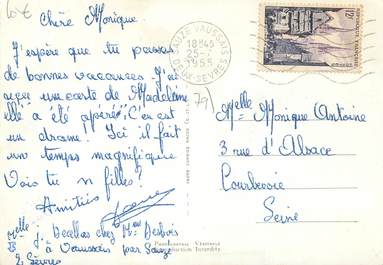 Chère Monique
J'espère que tu passes
de bonnes vacances. J'ai
reçu une carte de Madeleine
elle a été opérée. C'en est
un drame. Ici il fait
un temps magnifique
Vois tu n filles?
Amitiés
Mlle J. Decellas chez Mme Desbois
à Vaussais par Sauzé
2 Sèvres
SAUZE VAUSSAIS
18H45
25-7
1955
DEUX-SEVRES
12F
79
Melle Monique Antoine
3 rue d'Alsace
Courbevoie
Seine
Reproduction Interdite